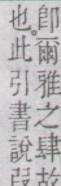 卽爾雅之肆故
也。此引書說